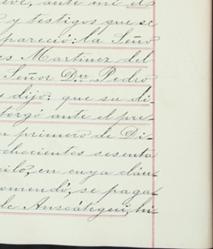 ante mí el
y testigos que se
pareció: la Seño
Martinez del
Señor Dn. Pedro
dijo: que su di
torgó ante el pre
primero de Di
chocientos sesenta
en cuya cláu
omendó, se paga
de Anscátegui, hi